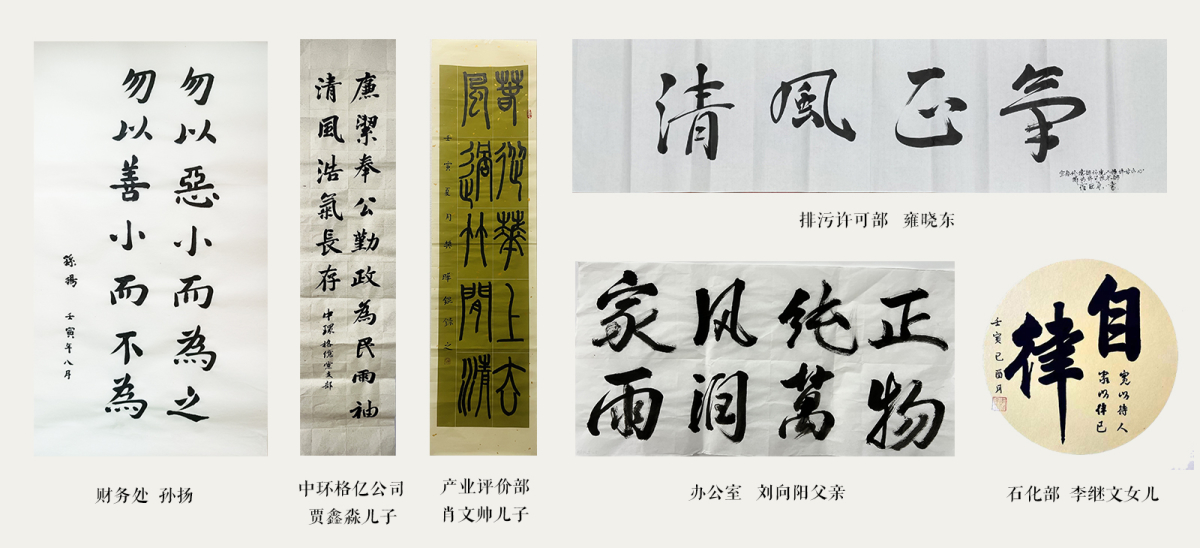 勿以惡小而為之
勿以善小而不為
孫揚 壬寅年八月
财务处 孙扬
廉潔奉公勤政為民雨袖
清風浩氣長存
中環格億黨支部
中环格亿公司
贾鑫淼儿子
春從華上去
風過竹間清
壬寅夏月
产业评价部
肖文帅儿子
清風正氣
排污许可部 雍晓东
家风纯正
雨润萬物
办公室 刘向阳父亲
自律
宽以待人
家以律己
壬寅己酉月
石化部 李继文女儿